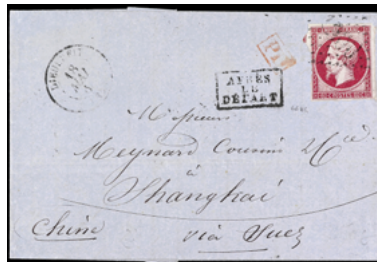 18
APRÈS
LE
DÉPART
Messieurs
Meynard Cousin & Cie
à
Shanghai
Chine
via Suez